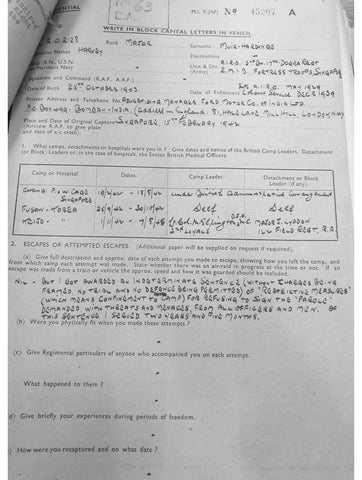 CONFIDENTIAL
No 63
C.A.
M.I. 9/JAP/ No 45207 A
WRITE IN BLOCK CAPITAL LETTERS IN PENCIL
Rank MAJOR Surname MUIR-HARDINGE
Christian Names HARVEY Decorations
Unit & Div
Z.M.I.B. FORTRESS TROOPS, SINGAPORE
Squadron and Command (R.A.F. A.A.F.)
Date of Birth 25TH OCTOBER 1903 MAY 1929
Date of Enlistment DEC R 1939
Private Address and Telephone No. ADVERTISING MANAGER FORD MOTOR CO. OF INDIA LTD.
BOMBAY-INDIA, (ADDRESS IN ENGLAND: HALE LANE, MILL HILL, LONDON, N.W.7)
Place and Date of Original Capture SINGAPORE, 15TH FEBRUARY 1942
(Aircrew R.A.F. to give place
and date of air crash).
1. What camps, detachments or hospitals were you in? Give dates and names of the British Camp Leaders, Detachment
(or Block) Leaders or, in the case of hospitals, the Senior British Medical Officers.
Camp or Hospital. Dates. Camp Leader. Detachment or Block
Leader (if any).
CHANGI P.O.W CAMP
SINGAPORE
FUSAN - KOREA SELF SELF
KEIJO MAJOR
2ND LOYALS 122 FIELD REGT. R.A.
2. ESCAPES OR ATTEMPTED ESCAPES. (Additional paper will be supplied on request if required).
(a) Give full description and approx. date of each attempt you made to escape, showing how you left the camp, and
from which camp each attempt was made. State whether there was an air-raid in progress at the time or not. If an
escape was made from a train or vehicle the approx. speed and how it was guarded should be included.
NIL - BUT I GOT AWARDED AN INDETERMINATE SENTENCE (WITHOUT CHARGES BEING
FRAMED, NO TRIAL AND NO DEFENCE BEING PERMITTED) OF "RESTRICTIVE MEASURES"
(WHICH MEANS CONFINEMENT TO CAMP) FOR REFUSING TO SIGN THE "PAROLE"
DEMANDED, WITH THREATS AND MENACES, FROM ALL OFFICERS AND MEN. OF
THIS SENTENCE I SERVED TWO YEARS AND FIVE MONTHS.
(b) Were you physically fit when you made these attempts?
(c) Give Regimental particulars of anyone who accompanied you on each attempt.
What happened to them?
(d) Give briefly your experiences during periods of freedom.
How were you recaptured and on what date?